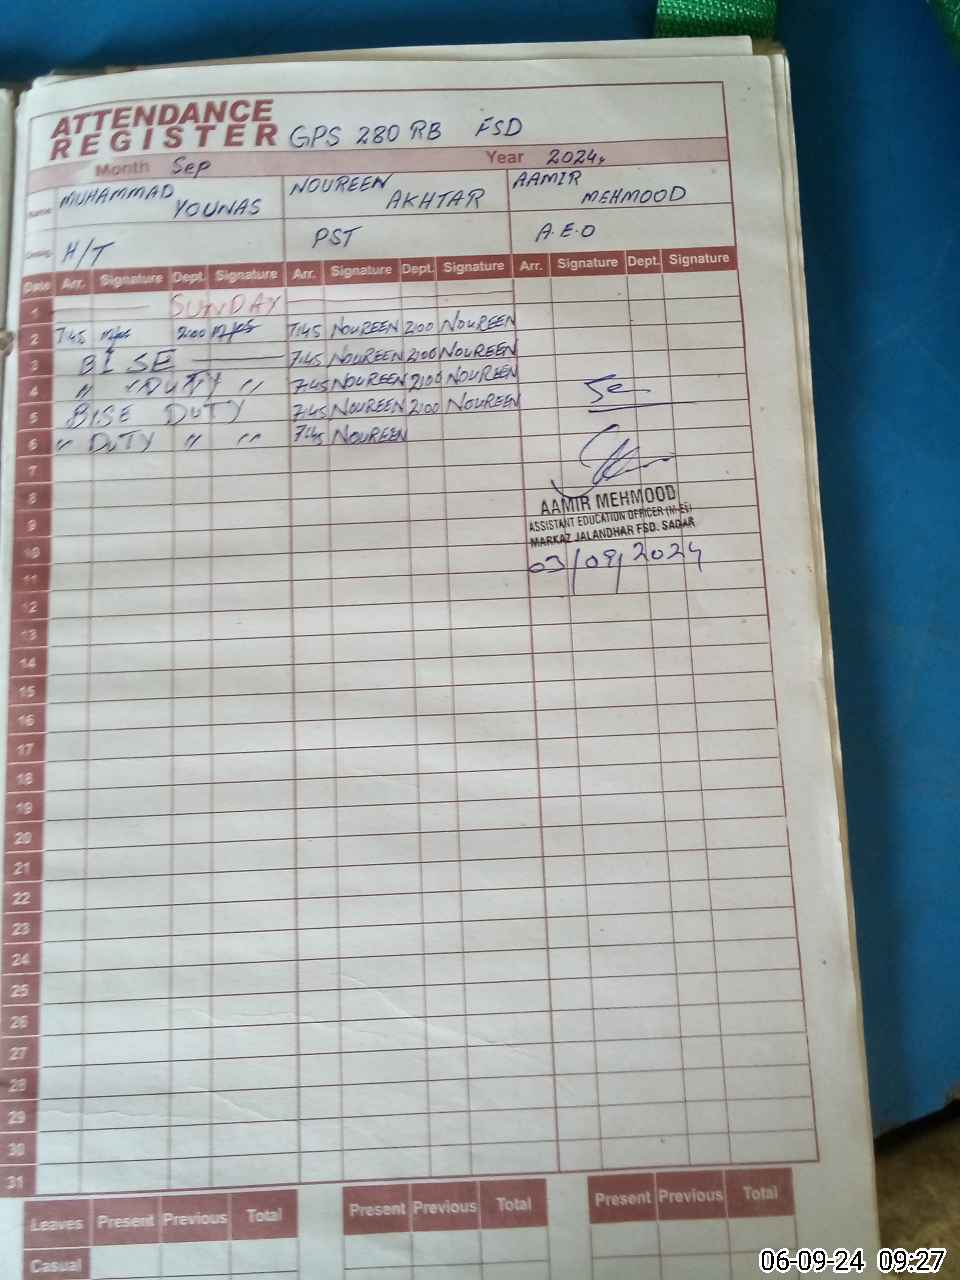 ATTENDANCE
REGISTER GPS 280 RB FSD
Month Sep Year 2024
Name MUHAMMAD YOUNAS NOUREEN AKHTAR AAMIR MEHMOOD
H/T PST A.E.O
Date Arr. Signature Dept. Signature Arr. Signature Dept. Signature Arr. Signature Dept. Signature
1 SUNDAY
2 7:45 2:00 7:45 NOUREEN 2:00 NOUREEN
3 BISE 7:45 NOUREEN 2:00 NOUREEN
4 " " DUTY " 7:45 NOUREEN 2:00 NOUREEN
5 BISE DUTY 7:45 NOUREEN 2:00 NOUREEN
6 " DUTY " " 7:45 NOUREEN
7
8 AAMIR MEHMOOD
9 ASSISTANT EDUCATION OFFICER (M-EE)
10 MARKAZ JALANDHAR FSD. SADAR
11 03/09/2024
12
13
14
15
16
17
18
19
20
21
22
23
24
25
26
27
28
29
30
31
Leaves Present Previous Total Present Previous Total Present Previous Total
Casual
06-09-24 09:27